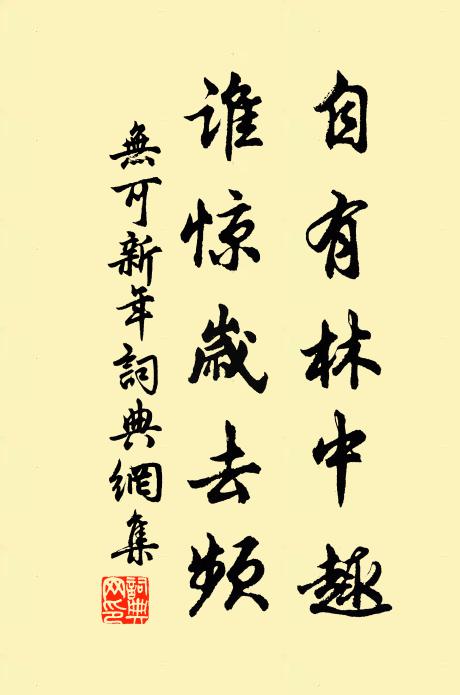 自有林中趣
谁惊歳去频
無可新年詞典網集
詞典网印